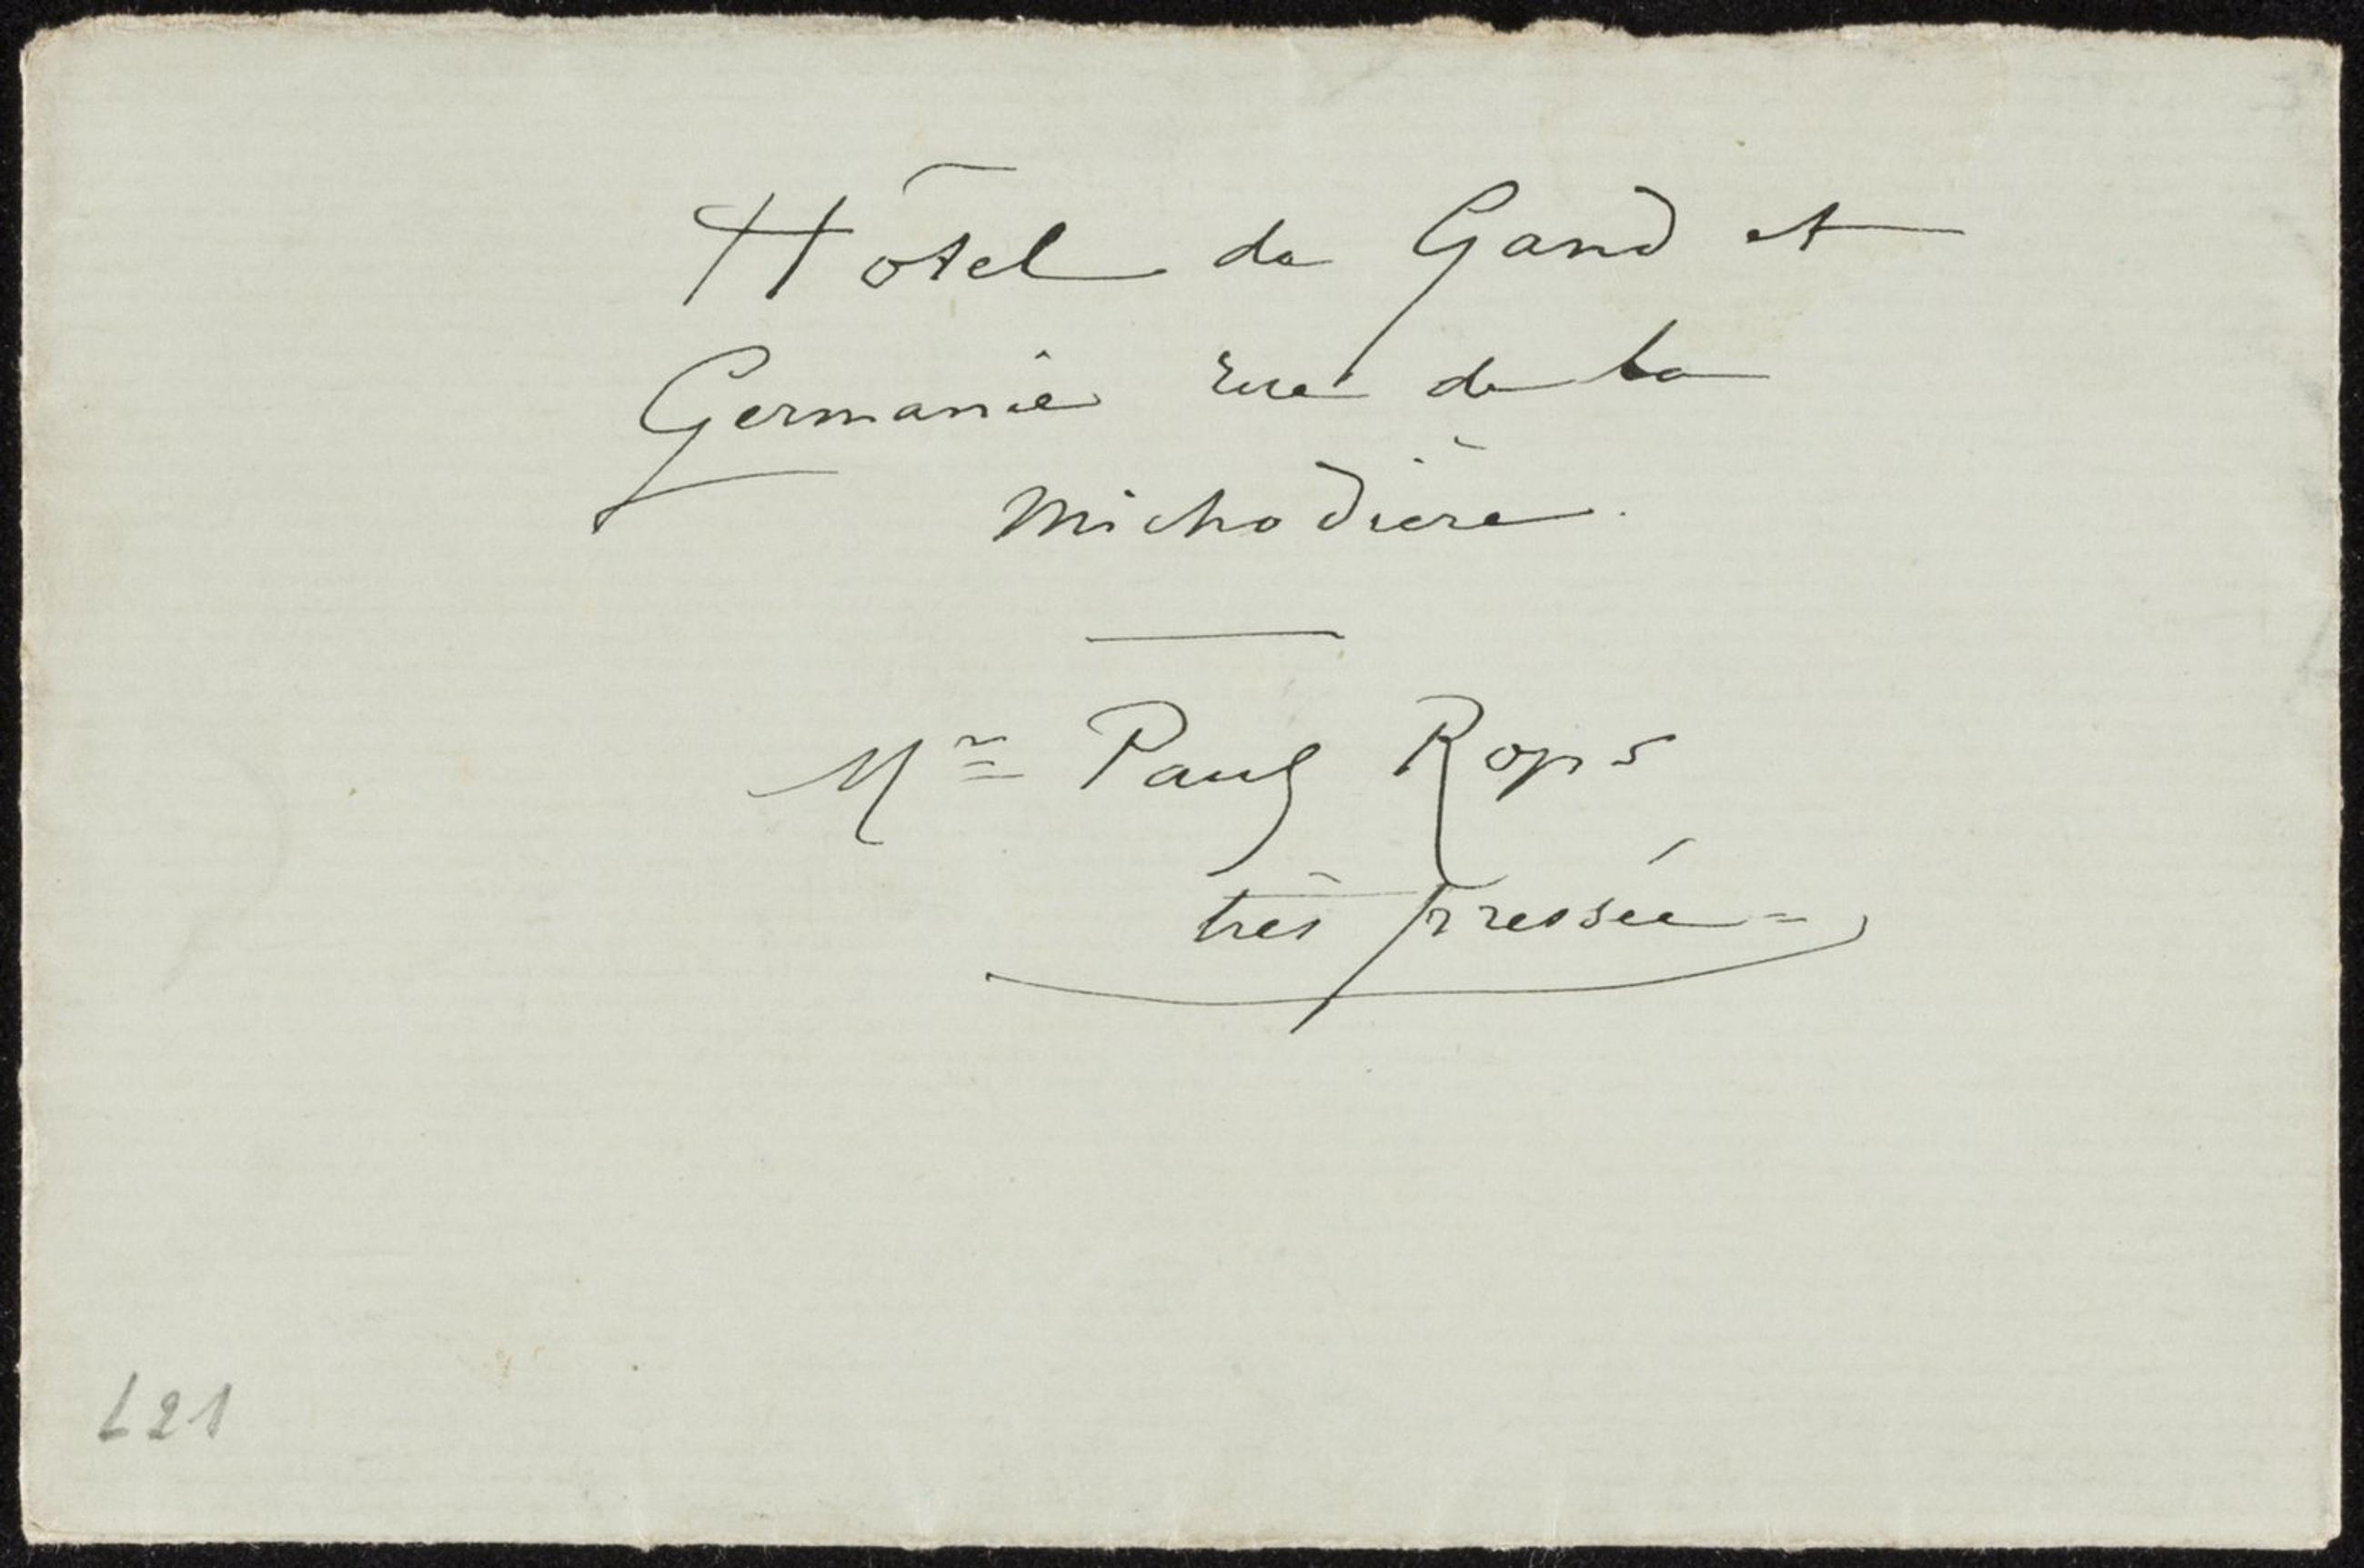 Hôtel de Gand et
Germanie rue de la
Michodière.
Mr Paul Rops
très pressée =
L21